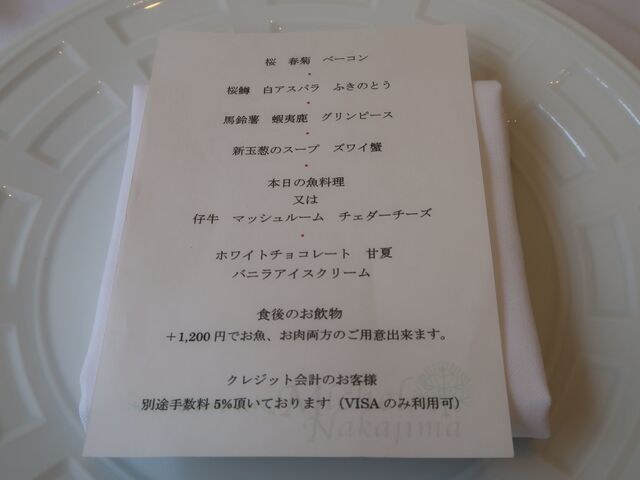 桜　春菊　ベーコン
・
桜鱒　白アスパラ　ふきのとう
・
馬鈴薯　蝦夷鹿　グリンピース
・
新玉葱のスープ　ズワイ蟹
・
本日の魚料理
又は
仔牛　マッシュルーム　チェダーチーズ
・
ホワイトチョコレート　甘夏
バニラアイスクリーム
食後のお飲物
＋1,200円でお魚、お肉両方のご用意出来ます。
クレジット会計のお客様
別途手数料5%頂いております（VISAのみ利用可）
Nakajima